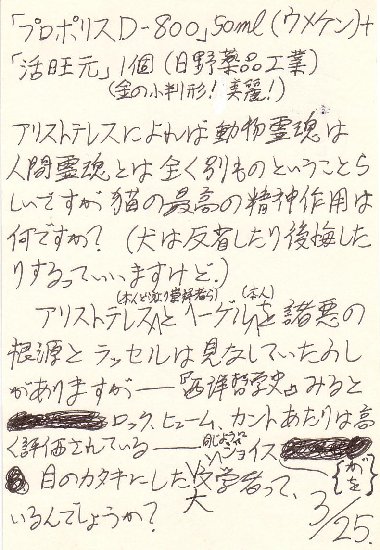 「プロポリスD-800」50ml(ウメケン)+
「活旺元」1個(日野薬品工業)
(金の小判形!美麗!)
アリストテレスによれば動物霊魂は
人間霊魂とは全く別ものということら
しいですが猫の最高の精神作用は
何ですか?(犬は反省したり後悔した
りするっていいますけど。)
(本人と 崇拝者ら) (本人)
アリストテレスとヘーゲルを諸悪の
根源とラッセルは見なしていたふし
がありますが──『西洋哲学史』みると
ロック、ヒューム、カントあたりは高
く評価されている──同じようにジョイス
{が を}
目のカタキにした大文学者って、
いるんでしょうか?
3/25.